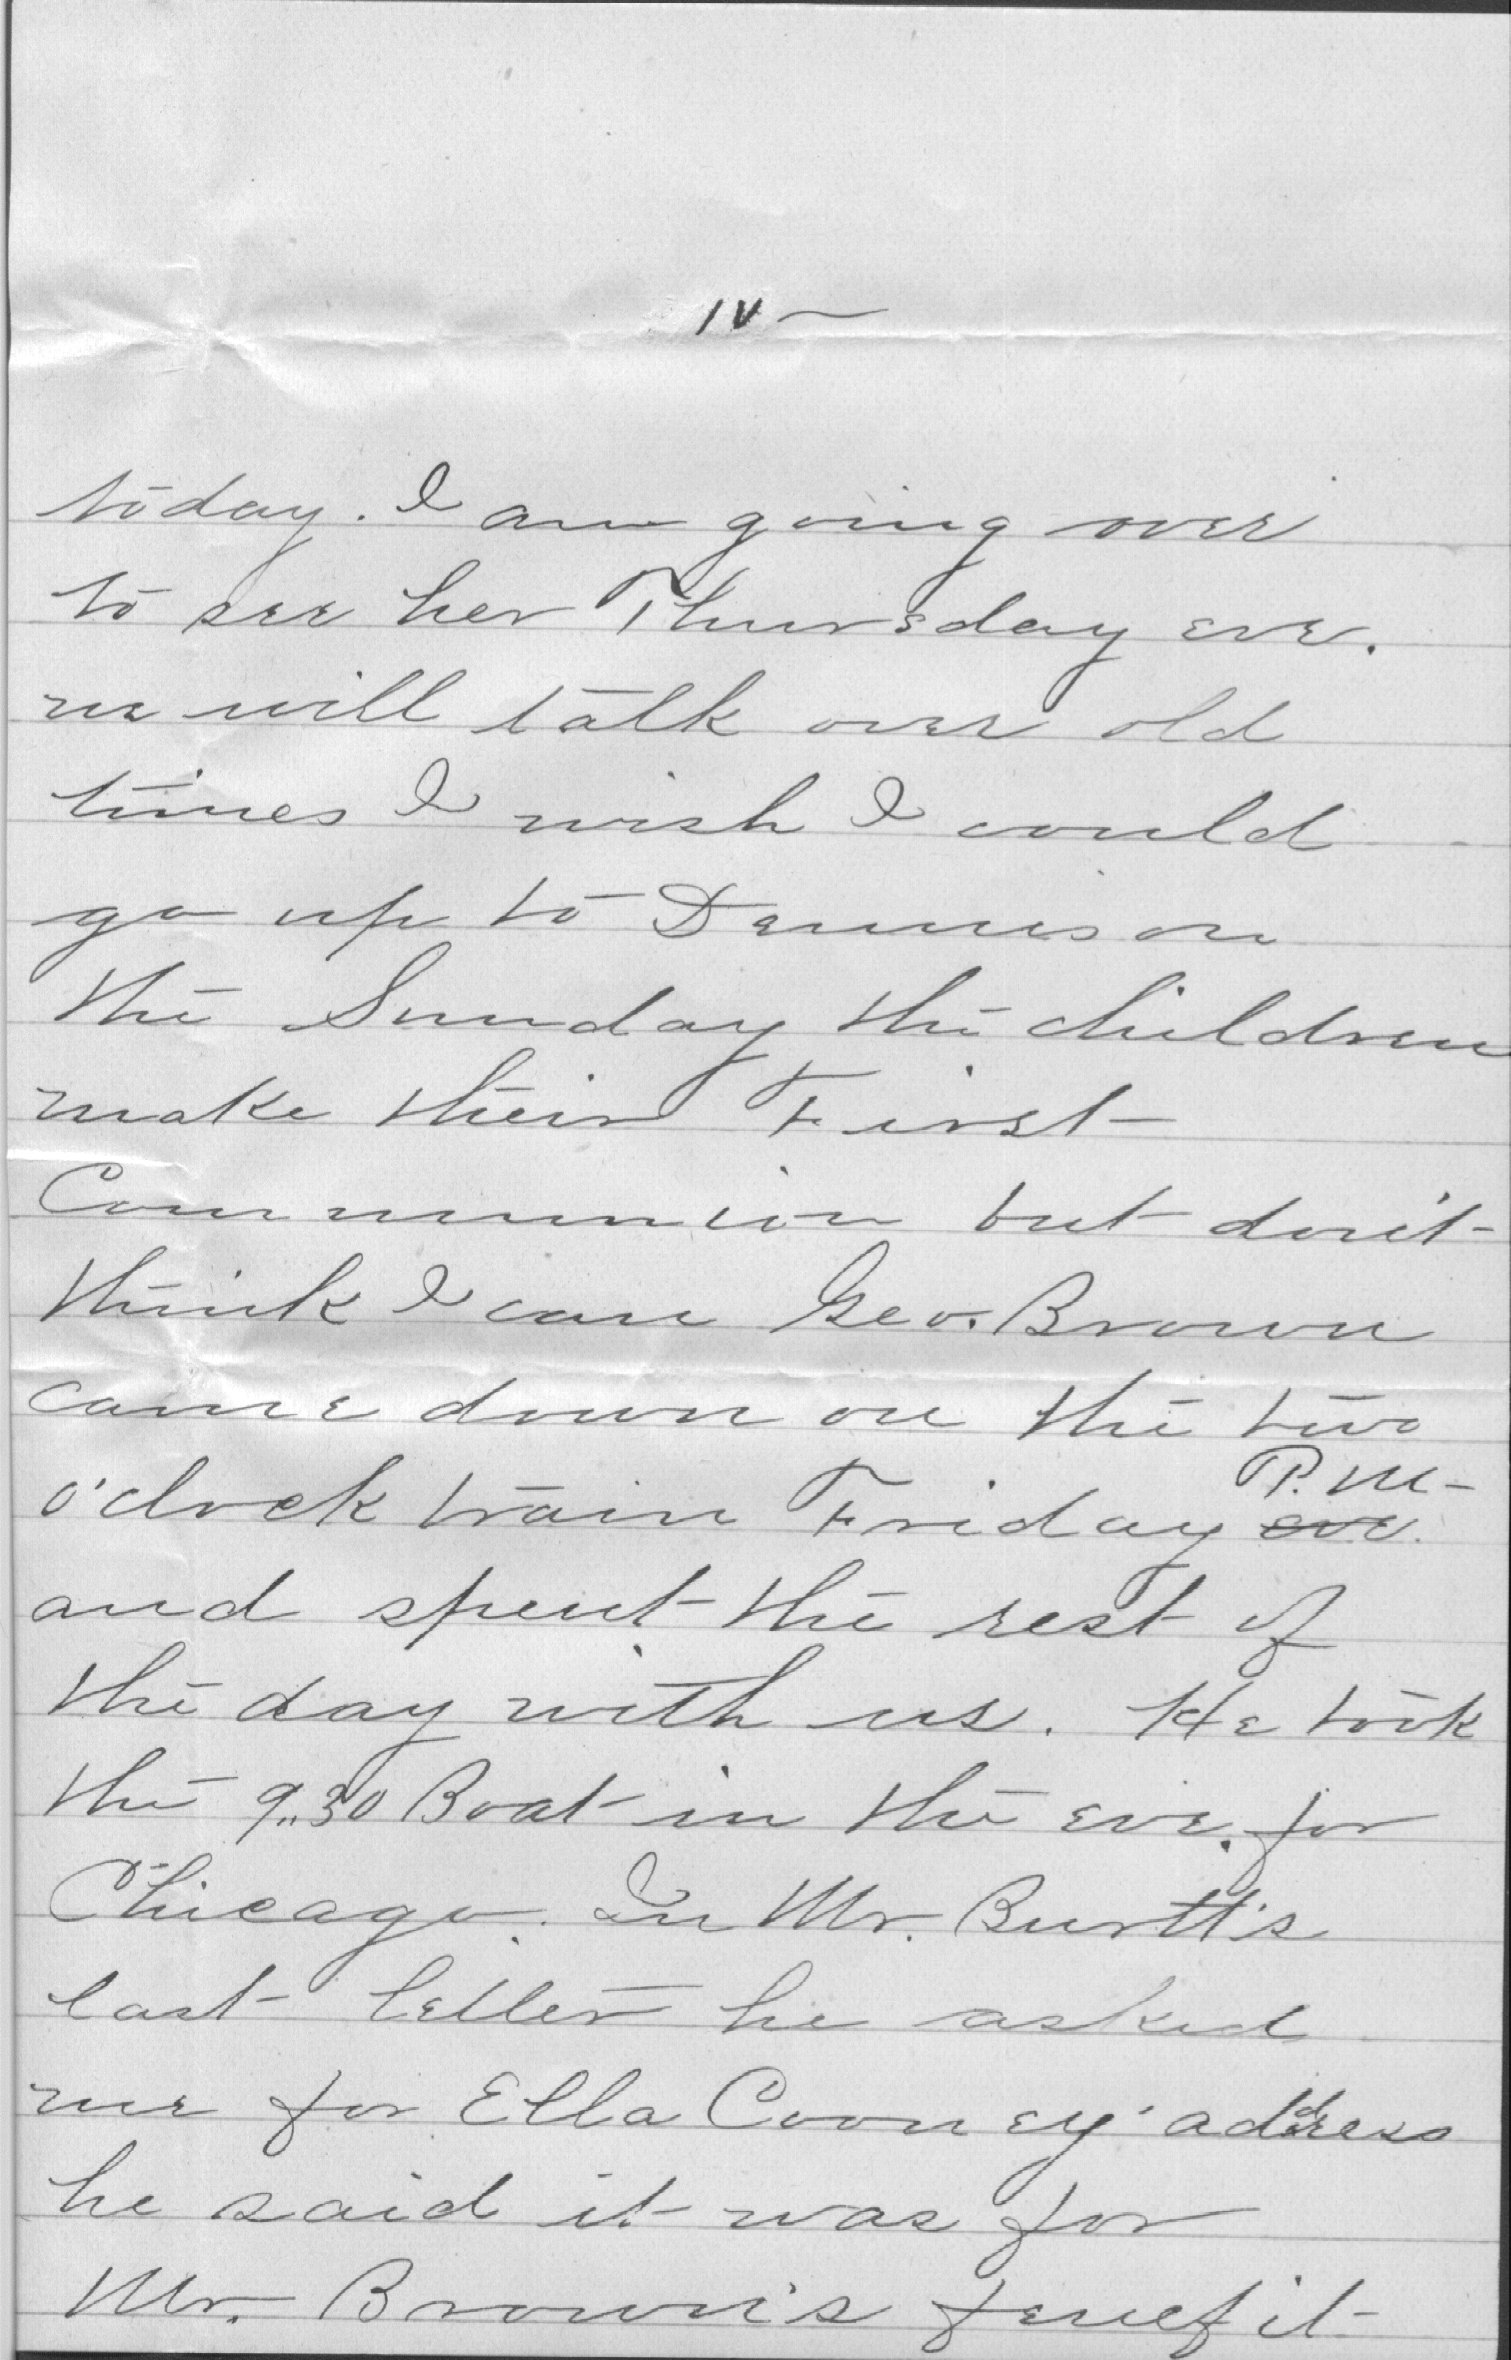 IV ~
today. I am going over
to see her Thursday eve.
we will talk over old
times I wish I could
go up to Dennison
the Sunday the children
make their First
Communion but don't
think I can Geo. Brown
came down on the two
o'clock train Friday eve. P.M-
and spent the rest of
the day with us. He took
the 9,,30 Boat in the eve. for
Chicago. In Mr. Burtt's
last letter he asked
me for Ella Cooney' address
he said it was for
Mr. Brown's benefit